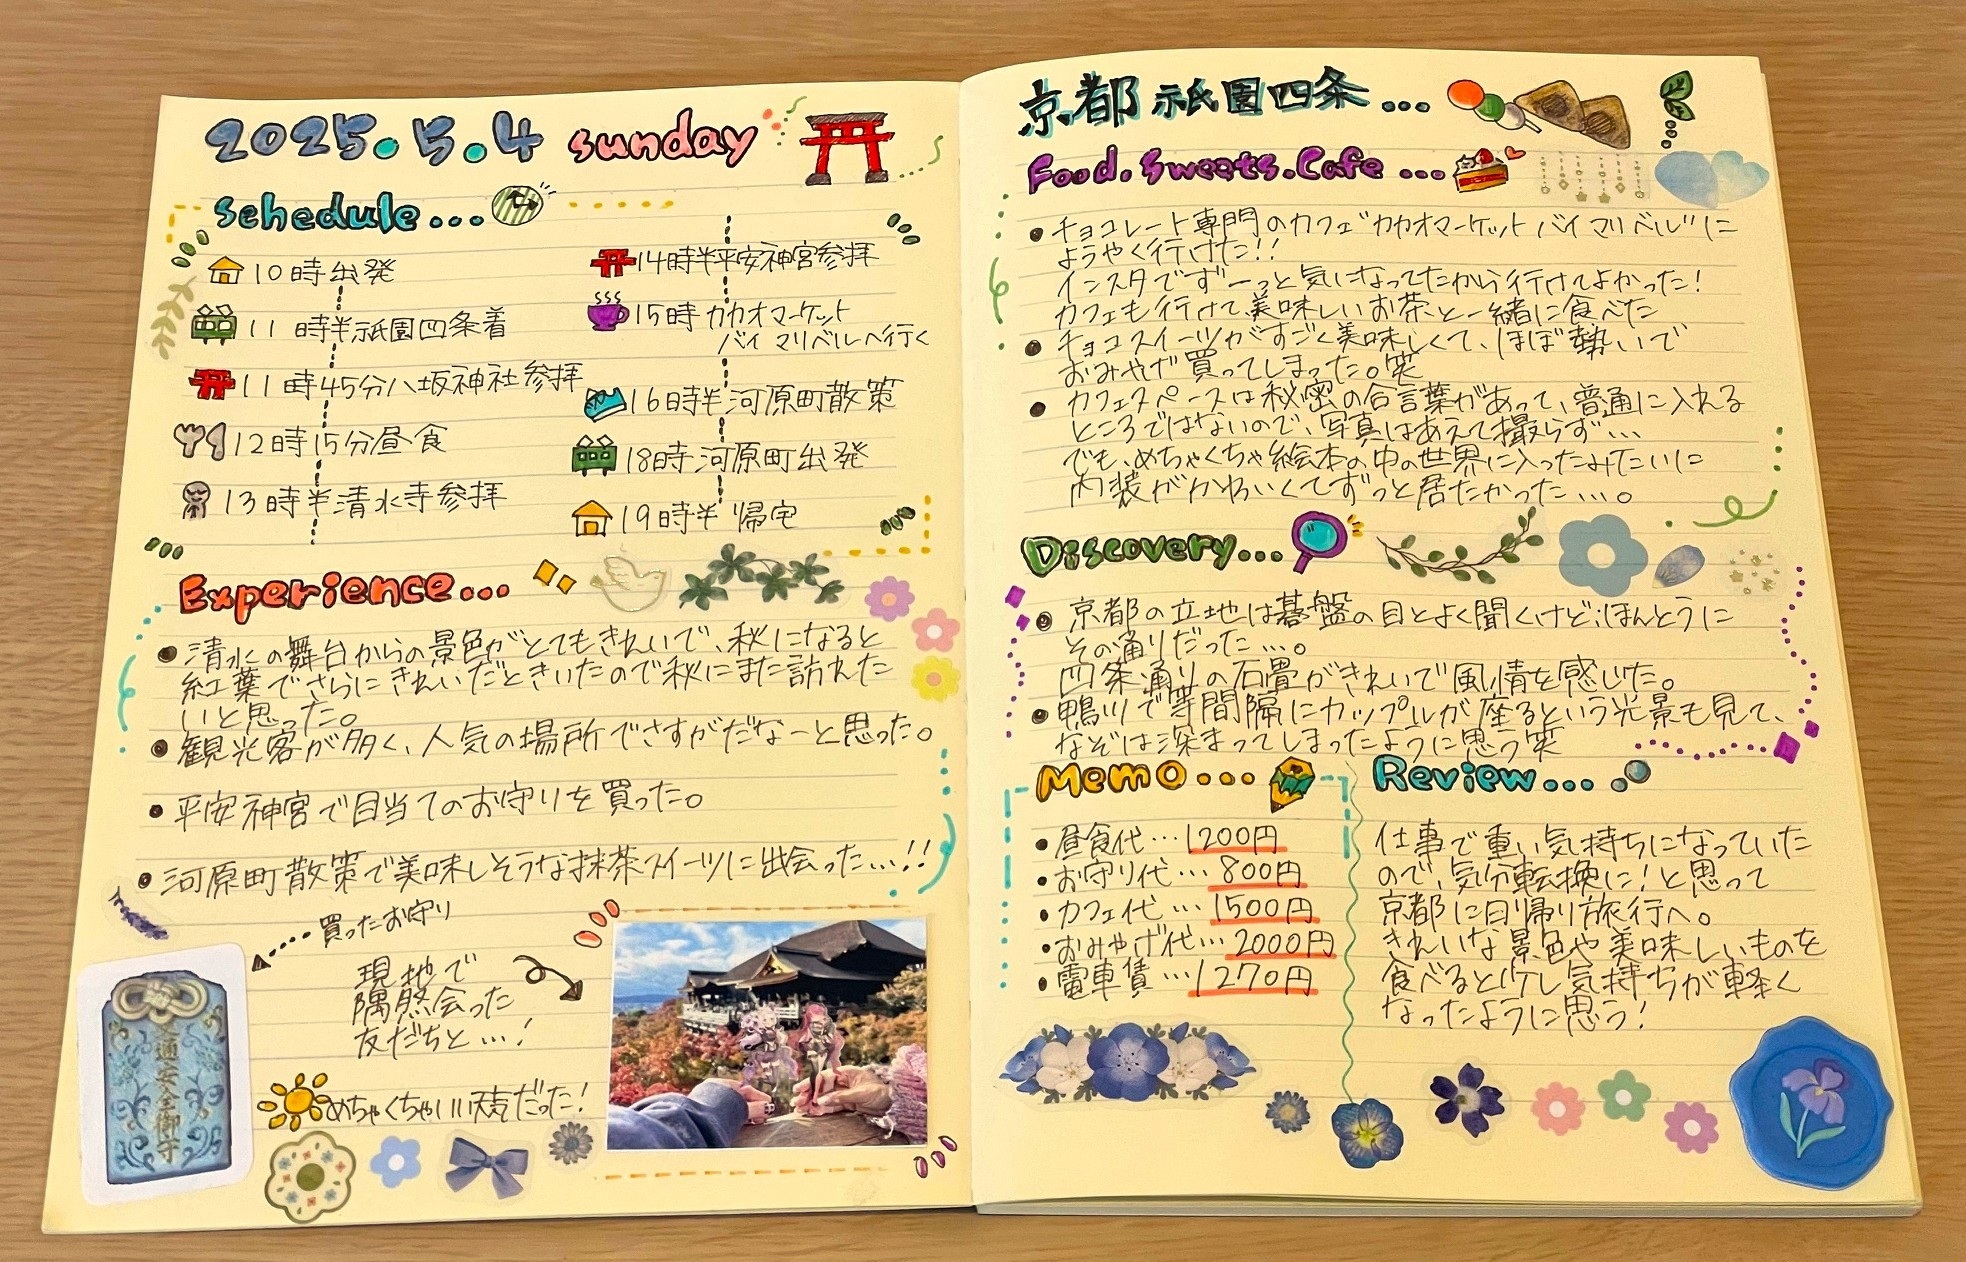 2025.5.4 sunday
schedule...
10時出発
11時半祇園四条着
11時45分八坂神社参拝
12時15分昼食
13時半清水寺参拝
14時半平安神宮参拝
15時カカオマーケット
バイ マリベルへ行く
16時半河原町散策
18時河原町出発
19時半 帰宅
Experience...
●清水の舞台からの景色がとてもきれいで、秋になると
紅葉でさらにきれいだときいたので秋にまた訪れた
いと思った。
●観光客が多く、人気の場所でさすがだなーと思った。
●平安神宮で目当てのお守りを買った。
●河原町散策で美味しそうな抹茶スイーツに出会った...!!
買ったお守り
現地で
偶然会った
友だちと...!
めちゃくちゃいい天気だった!
交通安全御守
京都 祇園四条...
Food.Sweets.Cafe...
●チョコレート専門のカフェ"カカオマーケット バイ マリベル"に
ようやく行けた!!
インスタでずーっと気になってたから行けてよかった!
カフェも行けて美味しいお茶と一緒に食べた
●チョコスイーツがすごく美味しくて、ほぼ勢いで
おみやげ買ってしまった。笑
●カフェスペースは秘密の合言葉があって、普通に入れる
ところではないので、写真はあえて撮らず...
でも、めちゃくちゃ絵本の中の世界に入ったみたいに
内装がかわいくてずっと居たかった...。
Discovery...
●京都の立地は碁盤の目とよく聞くけど、ほんとうに
その通りだった...。
四条通りの石畳がきれいで風情を感じた。
●鴨川で等間隔にカップルが座るという光景も見て、
なぞは深まってしまったように思う笑
Memo...
●昼食代...1200円
●お守り代...800円
●カフェ代...1500円
●おみやげ代...2000円
●電車賃...1270円
Review...
仕事で重い気持ちになっていた
ので、気分転換に!と思って
京都に日帰り旅行へ。
きれいな景色や美味しいものを
食べると少し気持ちが軽く
なったように思う!